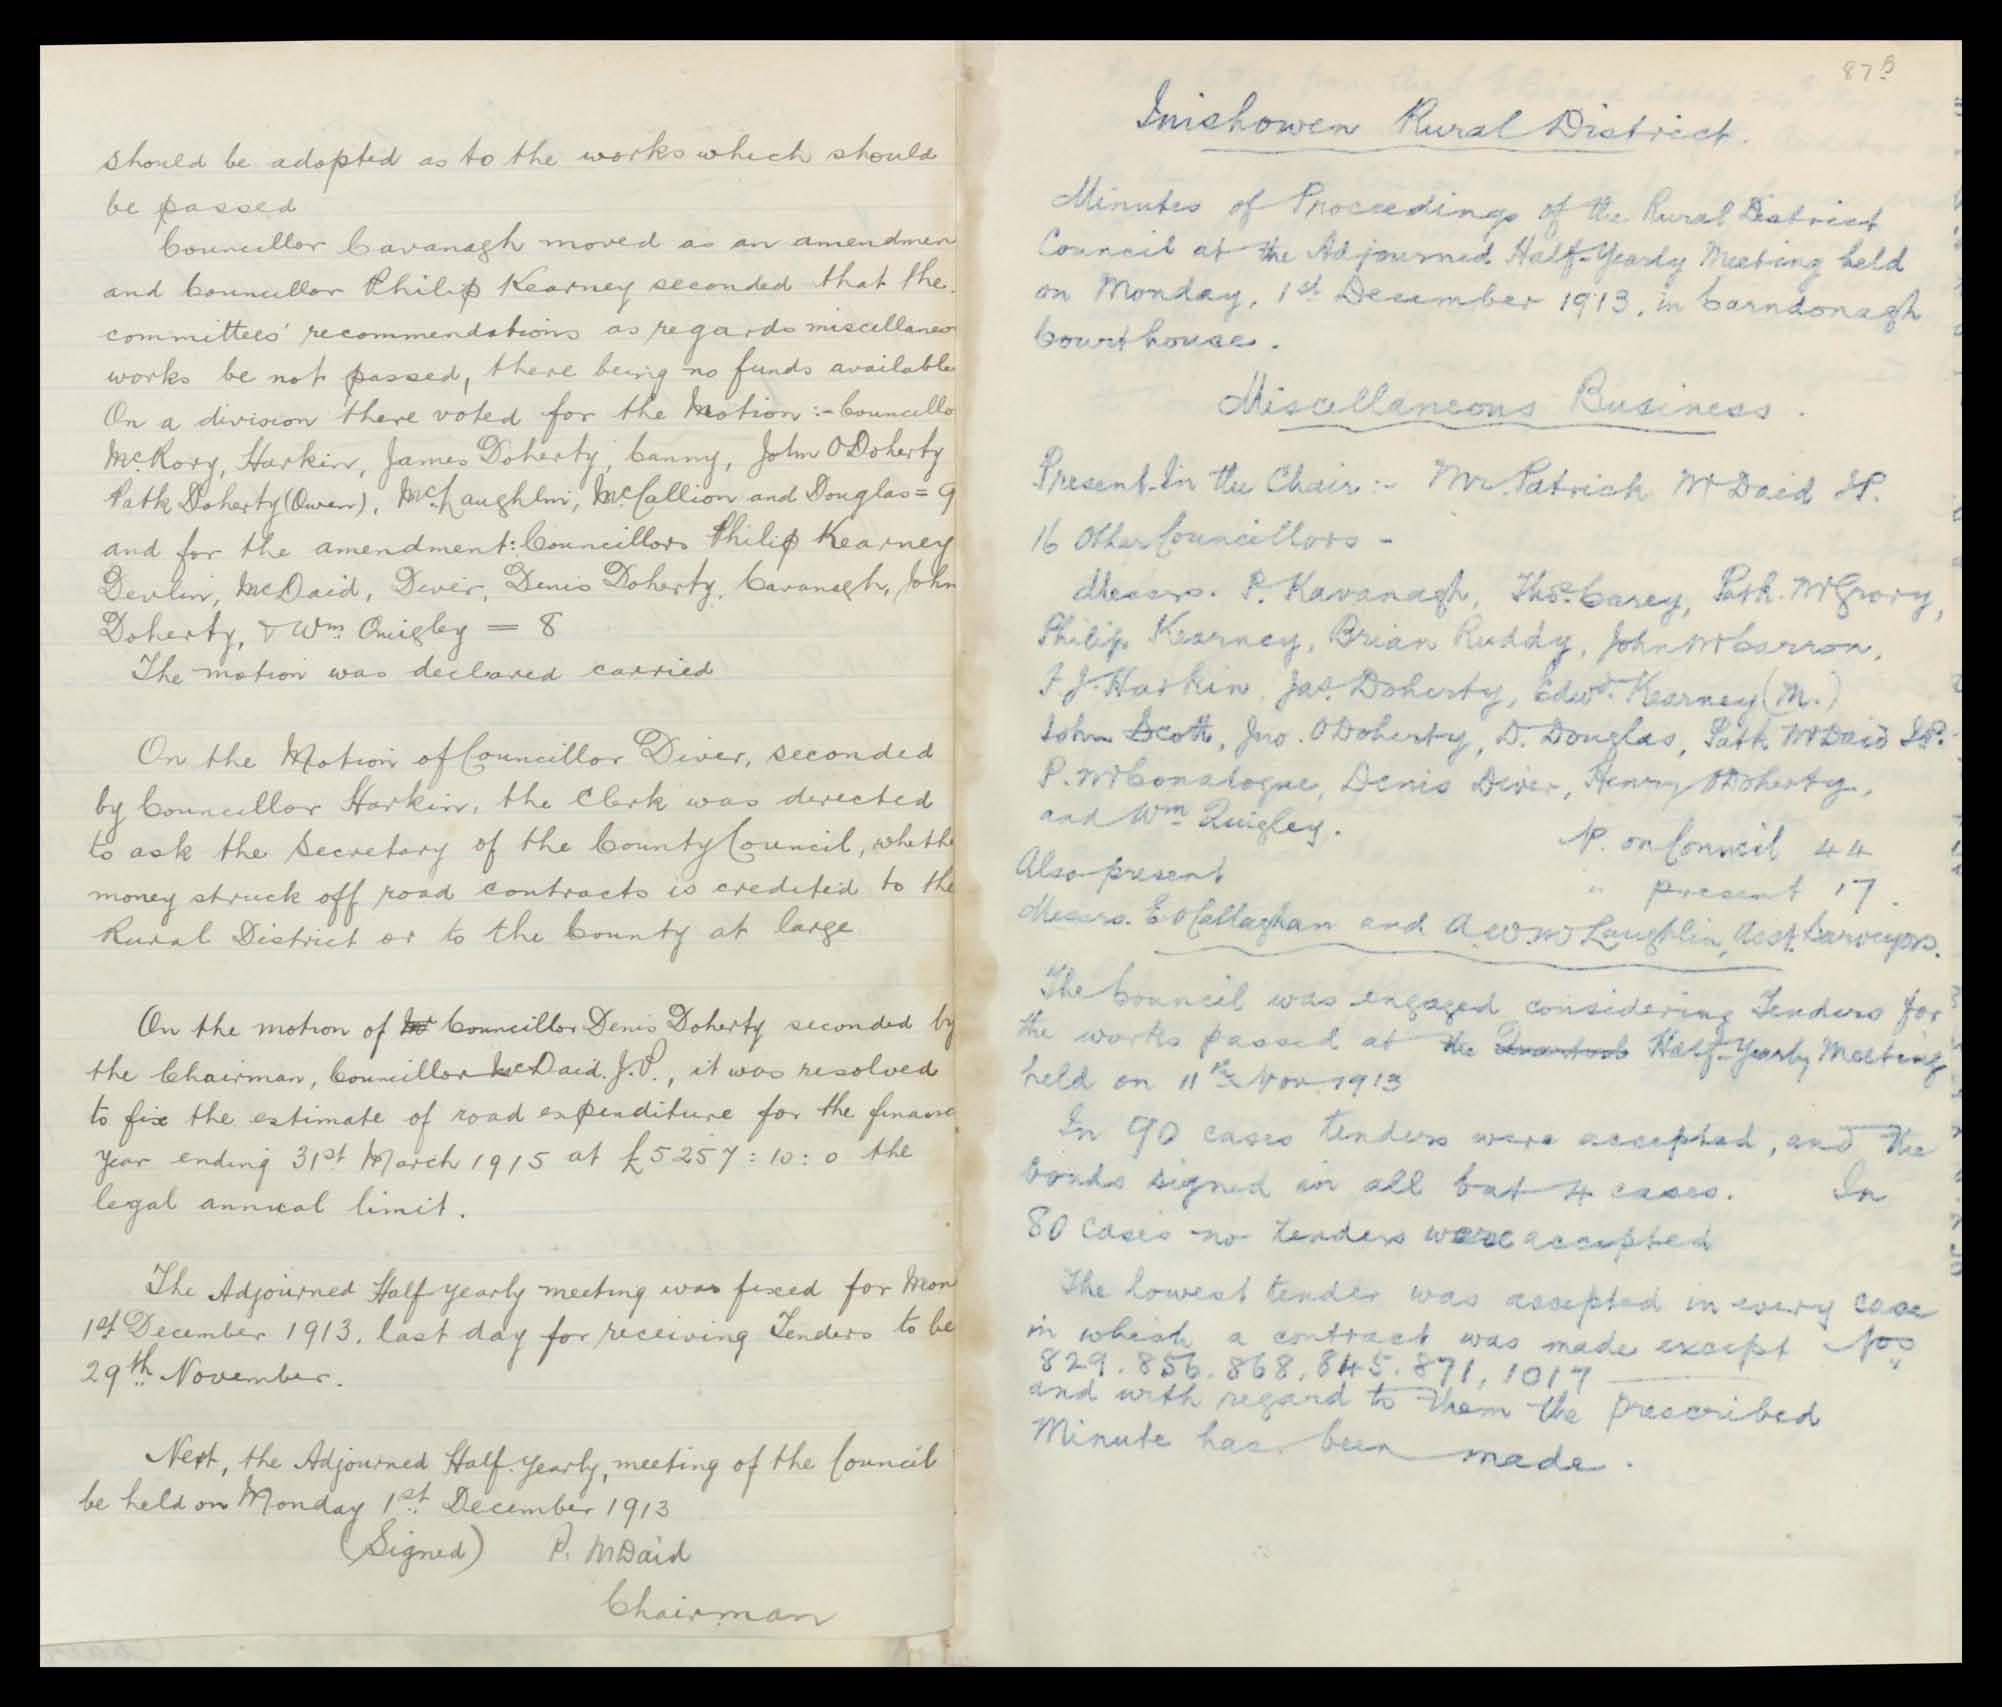 should be adopted as to the works which should
be passed
Councillor Cavanagh moved as an amendmen
and Councillor Philip Kearney seconded that the
committees' recommendations as regards miscellaneo
works be not passed, there being no funds available
On a division there voted for the Motion :- Councillo
McRory, Harkin, James Doherty, Canny, John O'Doherty
Patk Doherty (Owen), McLaughlin, McCallion and Douglas = 9
and for the amendment: Councillors Philip Kearney
Devlin, McDaid, Diver, Denis Doherty, Cavanagh, John
Doherty, & Wm Quigley = 8
The motion was declared carried
On the Motion of Councillor Diver, seconded
by Councillor Harkin, the Clerk was directed
to ask the Secretary of the County Council, wheth
money struck off road contracts is credited to the
Rural District or to the County at large
On the motion of Mr Councillor Denis Doherty seconded by
the Chairman, Councillor McDaid. J.P., it was resolved
to fix the estimate of road expenditure for the financ
year ending 31st March 1915 at £5257 : 10 : 0 the
legal annual limit.
The Adjourned Half yearly meeting was fixed for Mon
1st December 1913. last day for receiving Tenders to be
29th November.
Next, the Adjourned Half-Yearly, meeting of the Council
be held on Monday 1st December 1913
(Signed) P. McDaid
Chairman
87B
Inishowen Rural District.
Minutes of Proceedings of the Rural District
Council at the Adjourned Half-Yearly Meeting held
on Monday, 1st December 1913, in Carndonagh
Courthouse.
Miscellaneous Business.
Present-In the Chair :- Mr. Patrick McDaid J.P.
16 Other Councillors -
Messrs. P. Kavanagh, Thos. Carey, Patk. McGrory,
Philip Kearney, Brian Ruddy, John McCarron,
F. J. Harkin, Jas. Doherty, Edwd. Kearney (M.)
John Scott, Jno. O'Doherty, D. Douglas, Patk McDaid J.P.
P. McConalogue, Denis Diver, Henry O'Doherty,
and Wm Quigley.
No. on Council 44
Also present
" present 17.
Messrs. E O'Callaghan and A. W. McLaughlin, Asst. Surveyors.
The Council was engaged considering Tenders for
the works passed at the Quarterly Half-Yearly Meeting
held on 11th Nov 1913
In 90 cases tenders were accepted, and the
bonds signed in all but 4 cases. In
80 cases no tenders were accepted
The lowest tender was accepted in every case
in which a contract was made except Nos
829. 856. 868. 845. 871, 1017
and with regard to them the prescribed
Minute has been made.